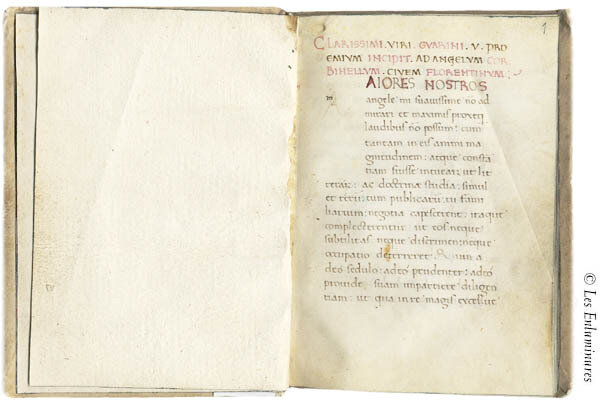 1
CLARISSIMI . VIRI . GVARINI . V . PRO
EMIVM INCIPIT . AD ANGELVM COR
BINELLVM . CIVEM FLORENTINVM :
AIORES NOSTROS
angele mi suauissime nō ad
mirari et maximis
laudibus nō possum : cum
tantam in eis animi ma
gnitudinem : atque constā
tiam fuisse intuear : ut lit
ac doctrinæ studia : simul
et tum publicarū tū fami
liarum : negotia capescerent : itaque
complecterentur : ut eos neque
subtilitas neque discrimen : neque
occupatio deterreret . Quin a
deo sedulo : adeo prudenter : adeo
prouide suam impartiere diligen
tiam : ut qua in re magis excelluit
© Les Enluminures